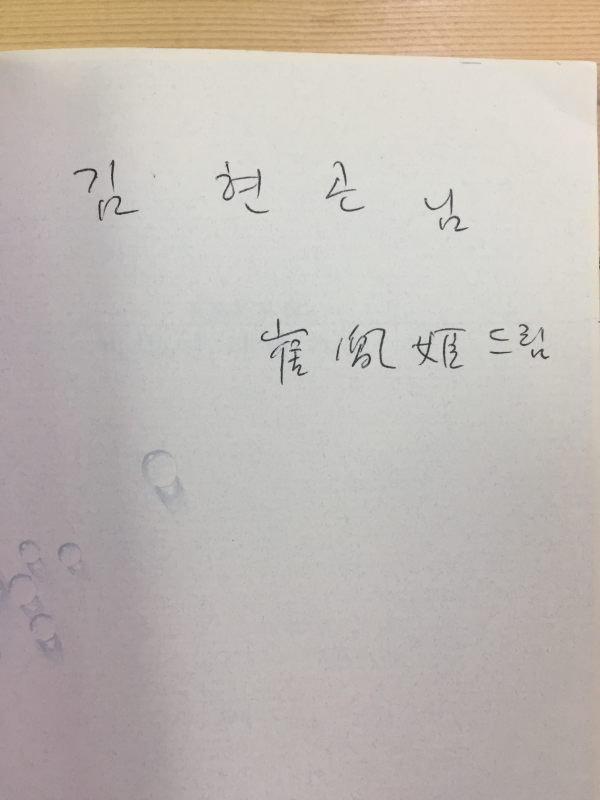 김 현 곤 님
崔 胤 姬 드림